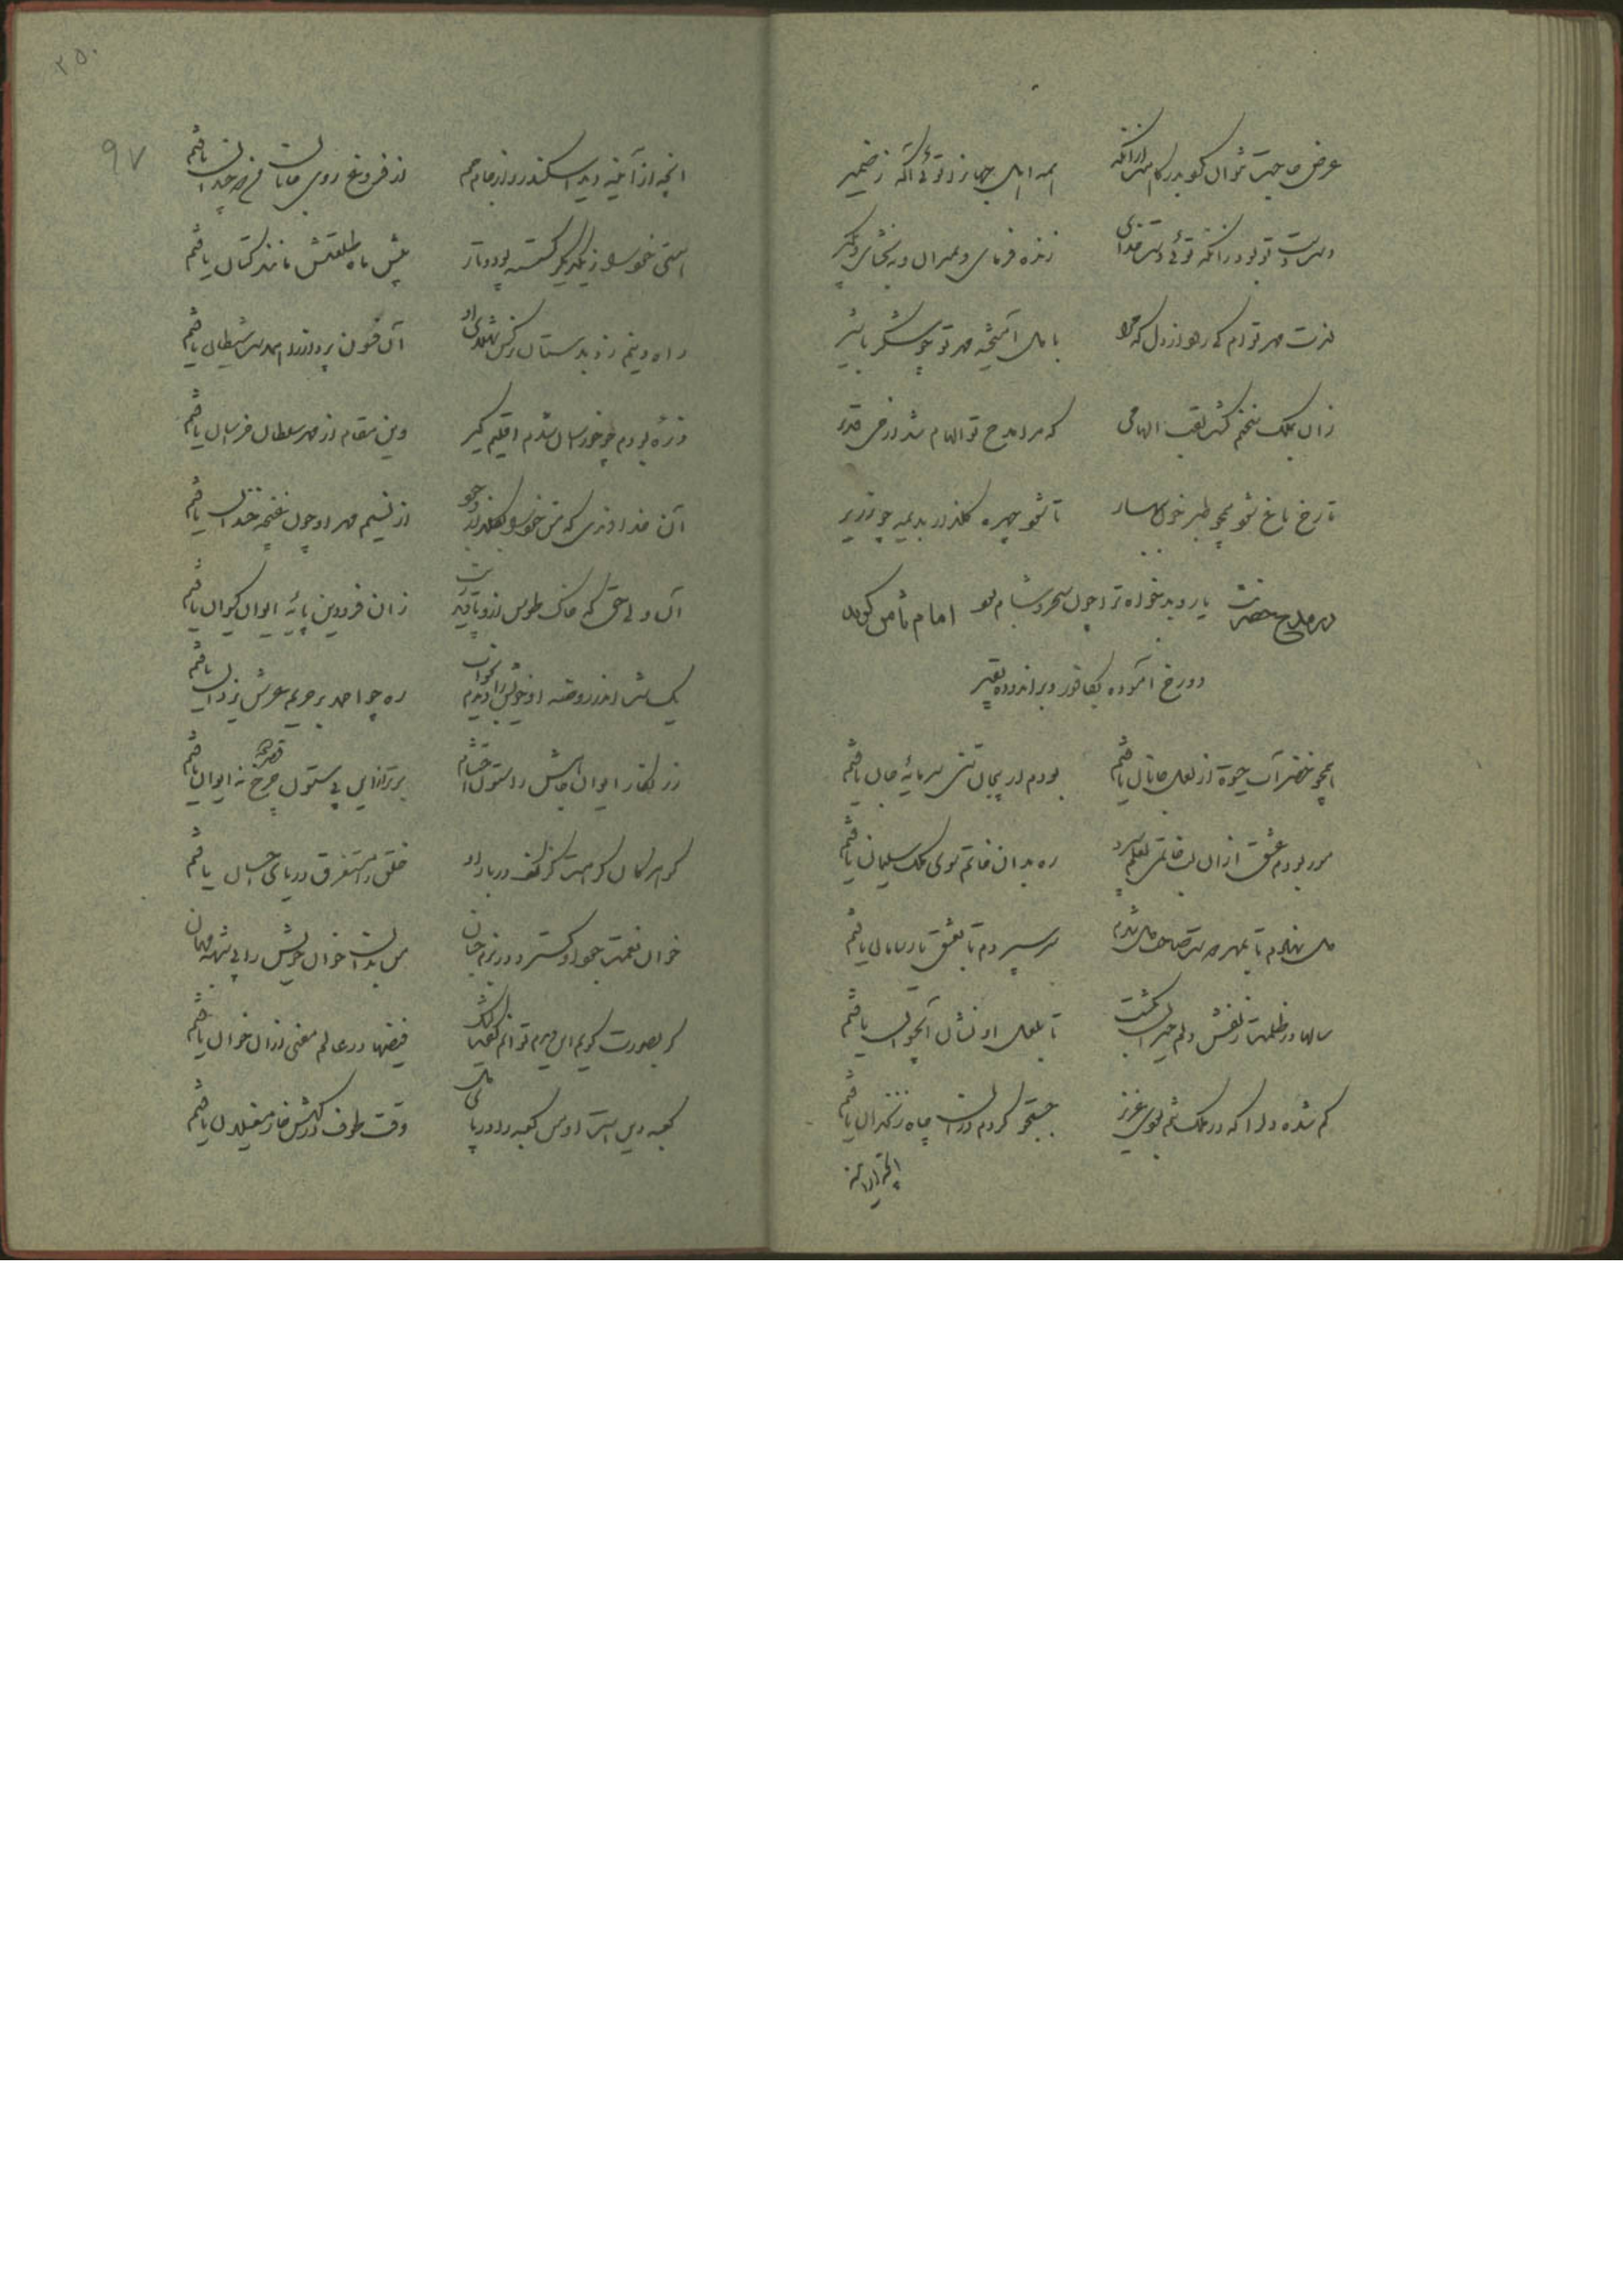 عرض حاجت نتوان کرد بدرگاهت ازانکه
همه اهل جهان را توئی آگه ز ضمیر
دست دست تو بود زانکه توئی دست خدای
زنده فرمای و بمیران و ببخشای و بگیر
لذت مهر تو ام کی رود از دل که مرا
با دل آمیخته مهر تو چو شکر با شیر
زان بملک سخنم گشت لقب الهامی
که مرا مدح تو الهام شد از حی قدیر
تا رخ باغ شود همچو طبر خون بهار
تا شود چهره گلزار بدیمه چو زریر
یار و بدخواه ترا چون سحر و شام بود
در مدح حضرت امام ثامن گوید
دو رخ آموده بکافور و براندوده بقیر
همچو خضر آب حیوة از لعل جانان یافتم
بودم ار بیجان تنی سرمایه جان یافتم
مور بودم عشق ازان لب خاتمی لعلم سپرد
ره بدان خاتم سوی ملک سلیمان یافتم
دل نهادم تا بمهرت صاحب دل شدم
سر سپردم تا بعشق یار سامان یافتم
سالها در ظلمت زلفش دلم حیران بگشت
تا بلعل او نشان آب حیوان یافتم
گم شده دل را که در ملک تنم بودی عزیز
جستجو کردم در آن چاه زنخدان یافتم
آنچه از آینه دید اسکندر و از جام جم
از فروغ روی جانان من دو چندان یافتم
هستی خود را ز یکدیگر گسسته پود و تار
پیش ماه طلعتش مانند کتان یافتم
راه دینم زد بدستان نرگس شهلای او
آن فسون پرداز را استاد شیطان یافتم
ذره بودم چو خور سان شدم اقلیم گیر
وین مقام از مهر سلطان خراسان یافتم
آن خداوندی که من خود را بگلزار وجود
از نسیم مهر او چون غنچه خندان یافتم
آن ولی حق که خاک طوس ازو تا قدر یافت
زان فرودین پایه ایوان کیوان یافتم
یک شب اندر روضه او خویش را دیدم بخواب
ره چو احمد بر حریم عرش یزدان یافتم
زرنگار ایوان جاهش را ستون احتشام
برتر از این بی ستون چرخ نه ایوان یافتم
گوهر کان کرامت کز کف دربار او
خلق را مستغرق دریای احسان یافتم
خوان نعمت جود او گسترد در بزم جهان
من بدان خوان خویش را
گر بصورت گویم این
فیضها در عالم معنی ازان خوان یافتم
کعبه دین است او من کعبه را در پای دل
وقت طوف درگهش خار مغیلان یافتم
۲۵۰
۹۷